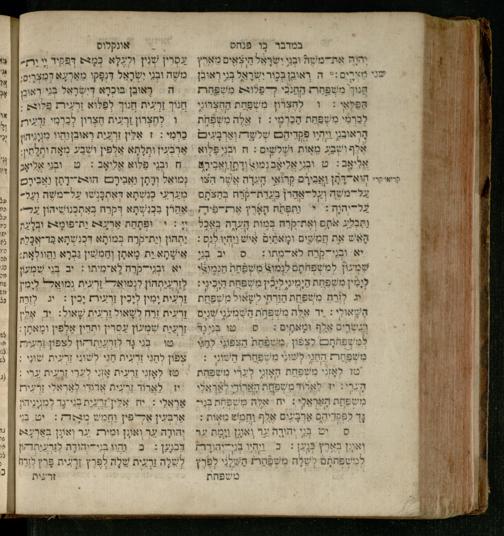 במדבר כו פנחס
יהוה את־משה ובני ישראל היצאים מארץ
מצרים: ה ראובן בכור ישראל בני ראובן
שני
חנוך משפחת החנכי לפלוא משפחת
הפלאי: ו לחצרון משפחת החצרוני
לכרמי משפחת הכרמי: ז אלה משפחת
הראובני ויהיו פקדיהם שלשה וארבעים
אלף ושבע מאות ושלשים: ח ובני פלוא
אליאב: ט ובני אליאב נמואל ודתן ואבירם
הוא־דתן ואבירם קרואי העדה אשר הצו
קריאי קרי
על־משה ועל־אהרן בעדת־קרח בהצתם
על־יהוה: י ותפתח הארץ את־פיה
ותבלע אתם ואת־קרח במות העדה באכל
האש את חמשים ומאתים איש ויהיו לנס:
יא ובני־קרח לא־מתו: ס יב בני
שמעון למשפחתם לנמואל משפחת הנמואלי
לימין משפחת הימיני ליכין משפחת היכיני:
יג לזרח משפחת הזרחי לשאול משפחת
השאולי: יד אלה משפחת השמעוני שנים
ועשרים אלף ומאתים: ס טו בני גד
למשפחתם לצפון משפחת הצפוני לחגי
משפחת החגי לשוני משפחת השוני:
טז לאזני משפחת האזני לערי משפחת
הערי: יז לארוד משפחת הארודי לאראלי
משפחת האראלי: יח אלה משפחת בני־
גד לפקדיהם ארבעים אלף וחמש מאות:
ס יט בני יהודה ער ואונן וימת ער
ואונן בארץ כנען: כ ויהיו בני־יהודה
למשפחתם לשלה משפחת השלני לפרץ
משפחת
אונקלוס
עסרין שנין ולעלא כמא דפקיד יי ית־
משה ובני ישראל דנפקו מארעא דמצרים:
ה ראובן בוכרא דישראל בני ראובן
חנוך זרעית חנוך לפלוא זרעית פלוא:
ו לחצרון זרעית חצרון לכרמי זרעית
כרמי: ז אלין זרעית ראובן והוו מניניהון
ארבעין ותלתא אלפין ושבע מאה ותלתין:
ח ובני פלוא אליאב: ט ובני אליאב
נמואל ודתן ואבירם הוא־דתן ואבירם
מערעי כנשתא דאתכנשו על־משה ועל־
אהרן בכנשתא דקרח באתכנושיהון על־
יי: י ופתחת ארעא ית־פומא ובלעת
יתהון וית־קרח במותא דכנשתא כד־אכלת
אישתא ית מאתן וחמשין גברא והוו לאת:
יא ובני־קרח לא־מיתו: יב בני שמעון
לזרעיתהון לנמואל זרעית נמואל לימין
זרעית ימין ליכין זרעית יכין: יג לזרח
זרעית זרח לשאול זרעית שאול: יד אלין
זרעית שמעון עסרין ותרין אלפין ומאתן:
טו בני גד לזרעיתהון לצפון זרעית
צפון לחגי זרעית חגי לשוני זרעית שוני:
טז לאזני זרעית אזני לערי זרעית ערי:
יז לארוד זרעית ארודי לאראלי זרעית
אראלי: יח אלין זרעית בני־גד למניניהון
ארבעין אלפין וחמש מאה: יט בני
יהודה ער ואונן ומית ער ואונן בארעא
דכנען: כ והוו בני־יהודה לזרעיתהון
לשלה זרעית שלה לפרץ זרעית פרץ לזרח
זרעית